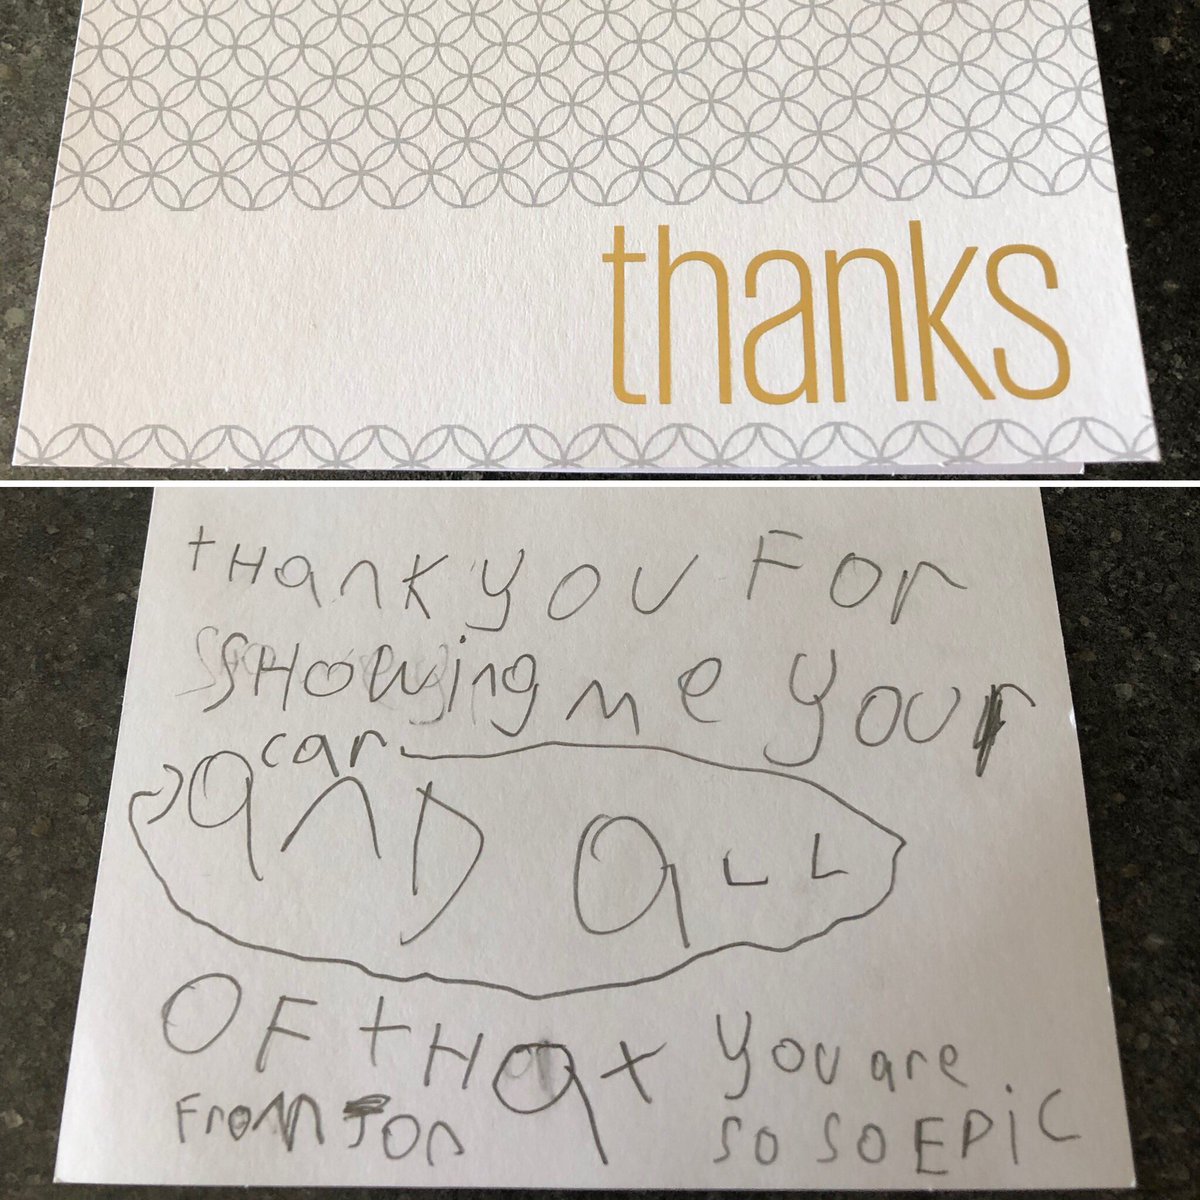 thanks
tHank you For
SHowing me your
car
anD aLL
OF tHat you are
From Jon so so EPiC